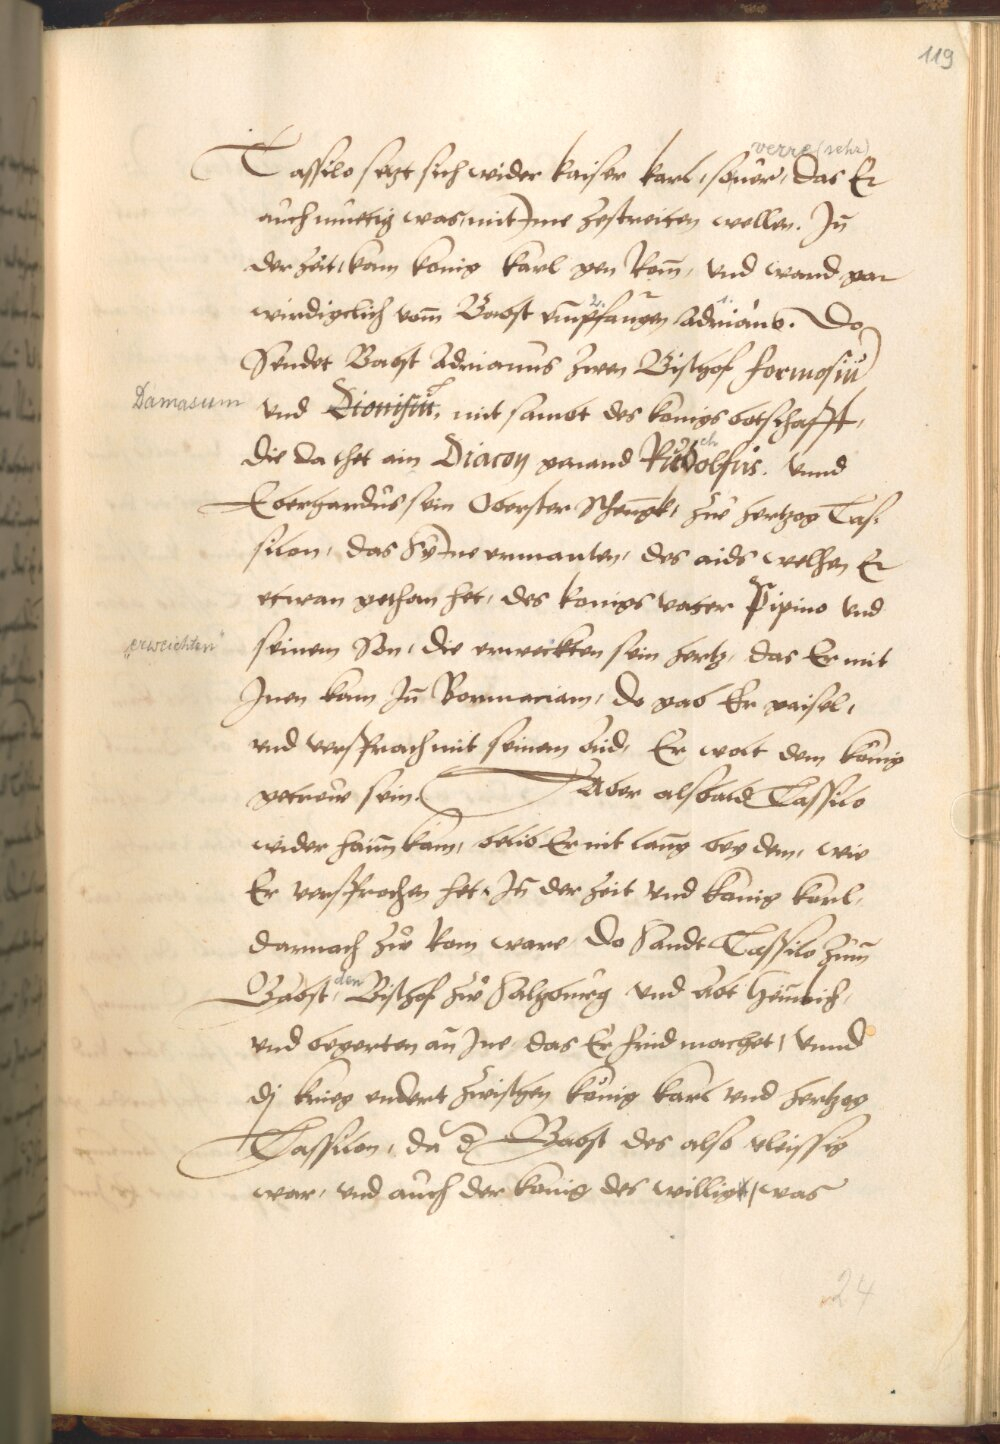 119
verre (sehr)
Tassilo setzt sich wider kaiser karl, souer, das Er
auch muettig was, mit Ime zestreiten wellen. Jn̄
der zeit, kam konig karl gen Rom̄, vnd ward gar
wirdigclich vom̄ Babst empfangen Adriano. Do
Sendet Babst Adrianus zwen Bischof formosiū
Damasum
vnd Dionisiū, mit sambt des konigs botschafft,
die da het ain Diacon genand Rudolfus. vnnd
Eberhardus sein Oberster Schennckh, zu hertzog Tas-
silon, das Sy Ine ermanten, des aids welhen Er
etwan gethan het, des konigs vater Pipino vnd
"erweichten"
seinem Son, die erweckten sein hertz, das Er mit
Inen kam Jn̄ Wormaciam, do gab Er geisel,
vnd versprach mit seinem aid, Er wolt dem konig
getrew sein. Aber alsbald Tassilo
wider haim̄ kam, belib Er nit lanng bey dem, wie
Er versprochen het. Jn̄ der zeit vnd konig karl,
darnach zu Rom ware do Sandt Tassilo zum̄
den
Babst, Bischof zu Saltzburg vnd Abt Heinrich,
vnd begerten an Ine das Er frid machet, vnnd
dj krieg endert zwischen konig karl vnd hertzog
Tassilon, da d Babst des also vleissig
war, vnd auch der konig des willig was
24